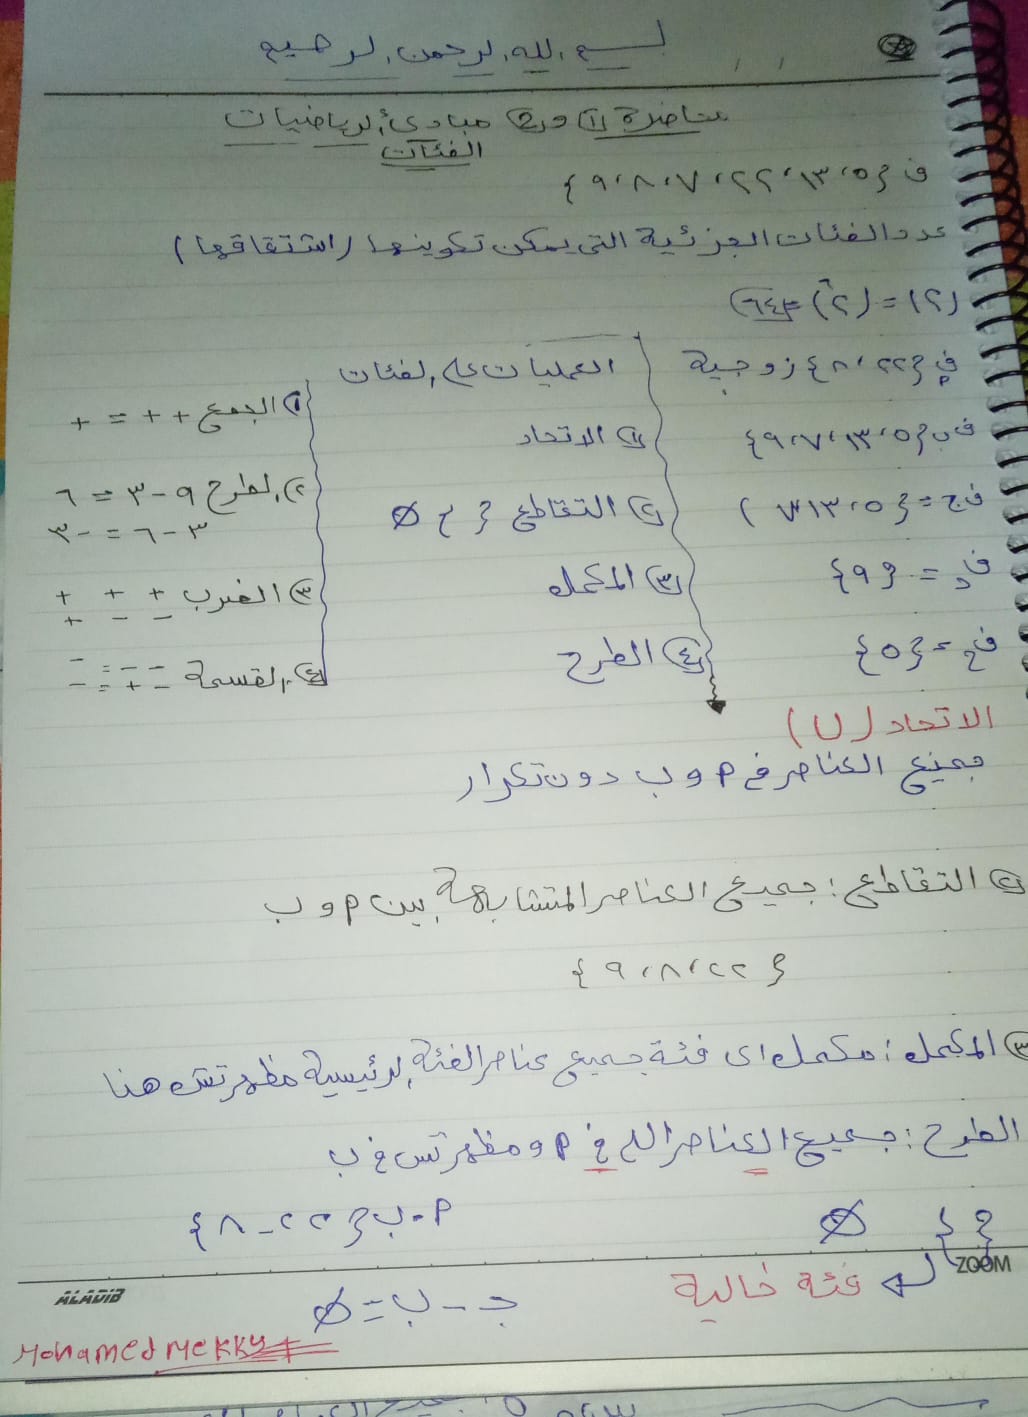 بسم الله الرحمن الرحيم
محاضرة ① و ② مبادئ الرياضيات
الفئات
ف {٥، ١٣، ٢٢، ٧، ٨، ٩}
عدد الفئات الجزئية التي يمكن تكوينها (اشتقاقها)
(٢)^ن = (٢)^٦ = ٦٤
ف أ {٢٢، ٨} زوجية
ف ب {٥، ١٣، ٧، ٩}
ف ج = {٥، ١٣، ٧}
ف د = {٩}
ف ح = {٥}
العمليات على الفئات
① الاتحاد
② التقاطع { } ∅
③ المكمل
④ الطرح
① الجمع + + = +
② الطرح ٩ - ٣ = ٦
٣ - ٦ = -٣
③ الضرب + + -
+ - -
④ القسمة
الاتحاد (U)
جميع العناصر في أ و ب دون تكرار
② التقاطع: جميع العناصر المتشابهة بين أ و ب
{٢٢، ٨، ٩}
③ المكمل: مكمل اى فئة جميع عناصر الفئة الرئيسية مظهرتش هنا
الطرح: جميع العناصر اللى في أ و مظهرتش في ب
أ - ب {٢٢ - ٨}
{ } ∅
فئة خالية
ج - ب = ∅
ZOOM
ALADIB
Mohamed Mekky